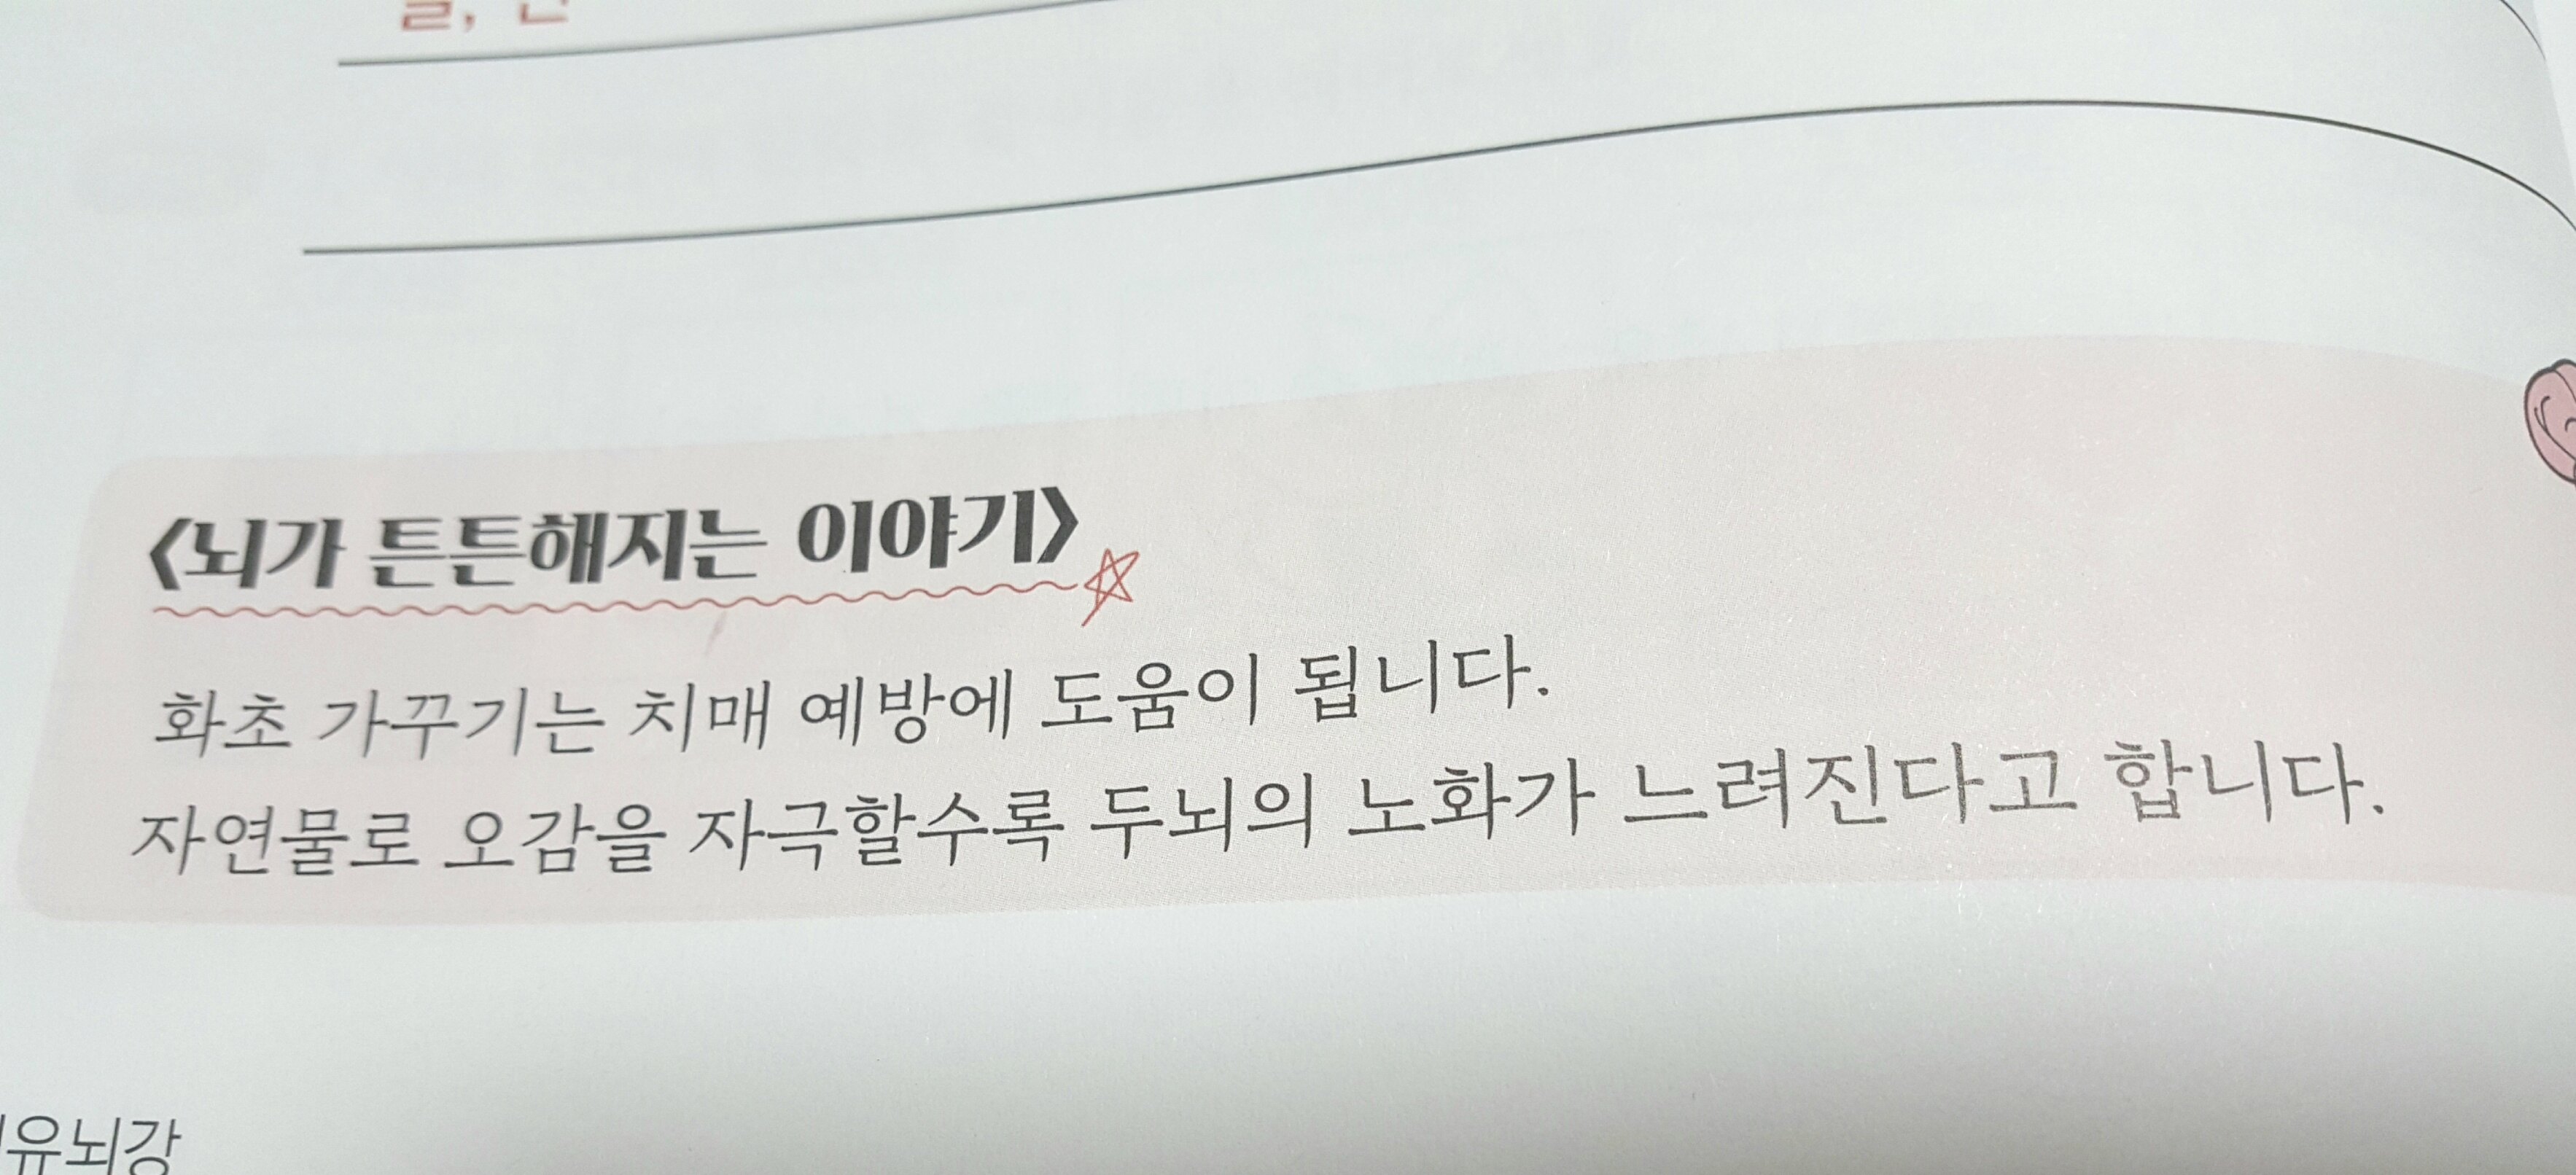 〈뇌가 튼튼해지는 이야기〉
화초 가꾸기는 치매 예방에 도움이 됩니다.
자연물로 오감을 자극할수록 두뇌의 노화가 느려진다고 합니다.
유뇌강